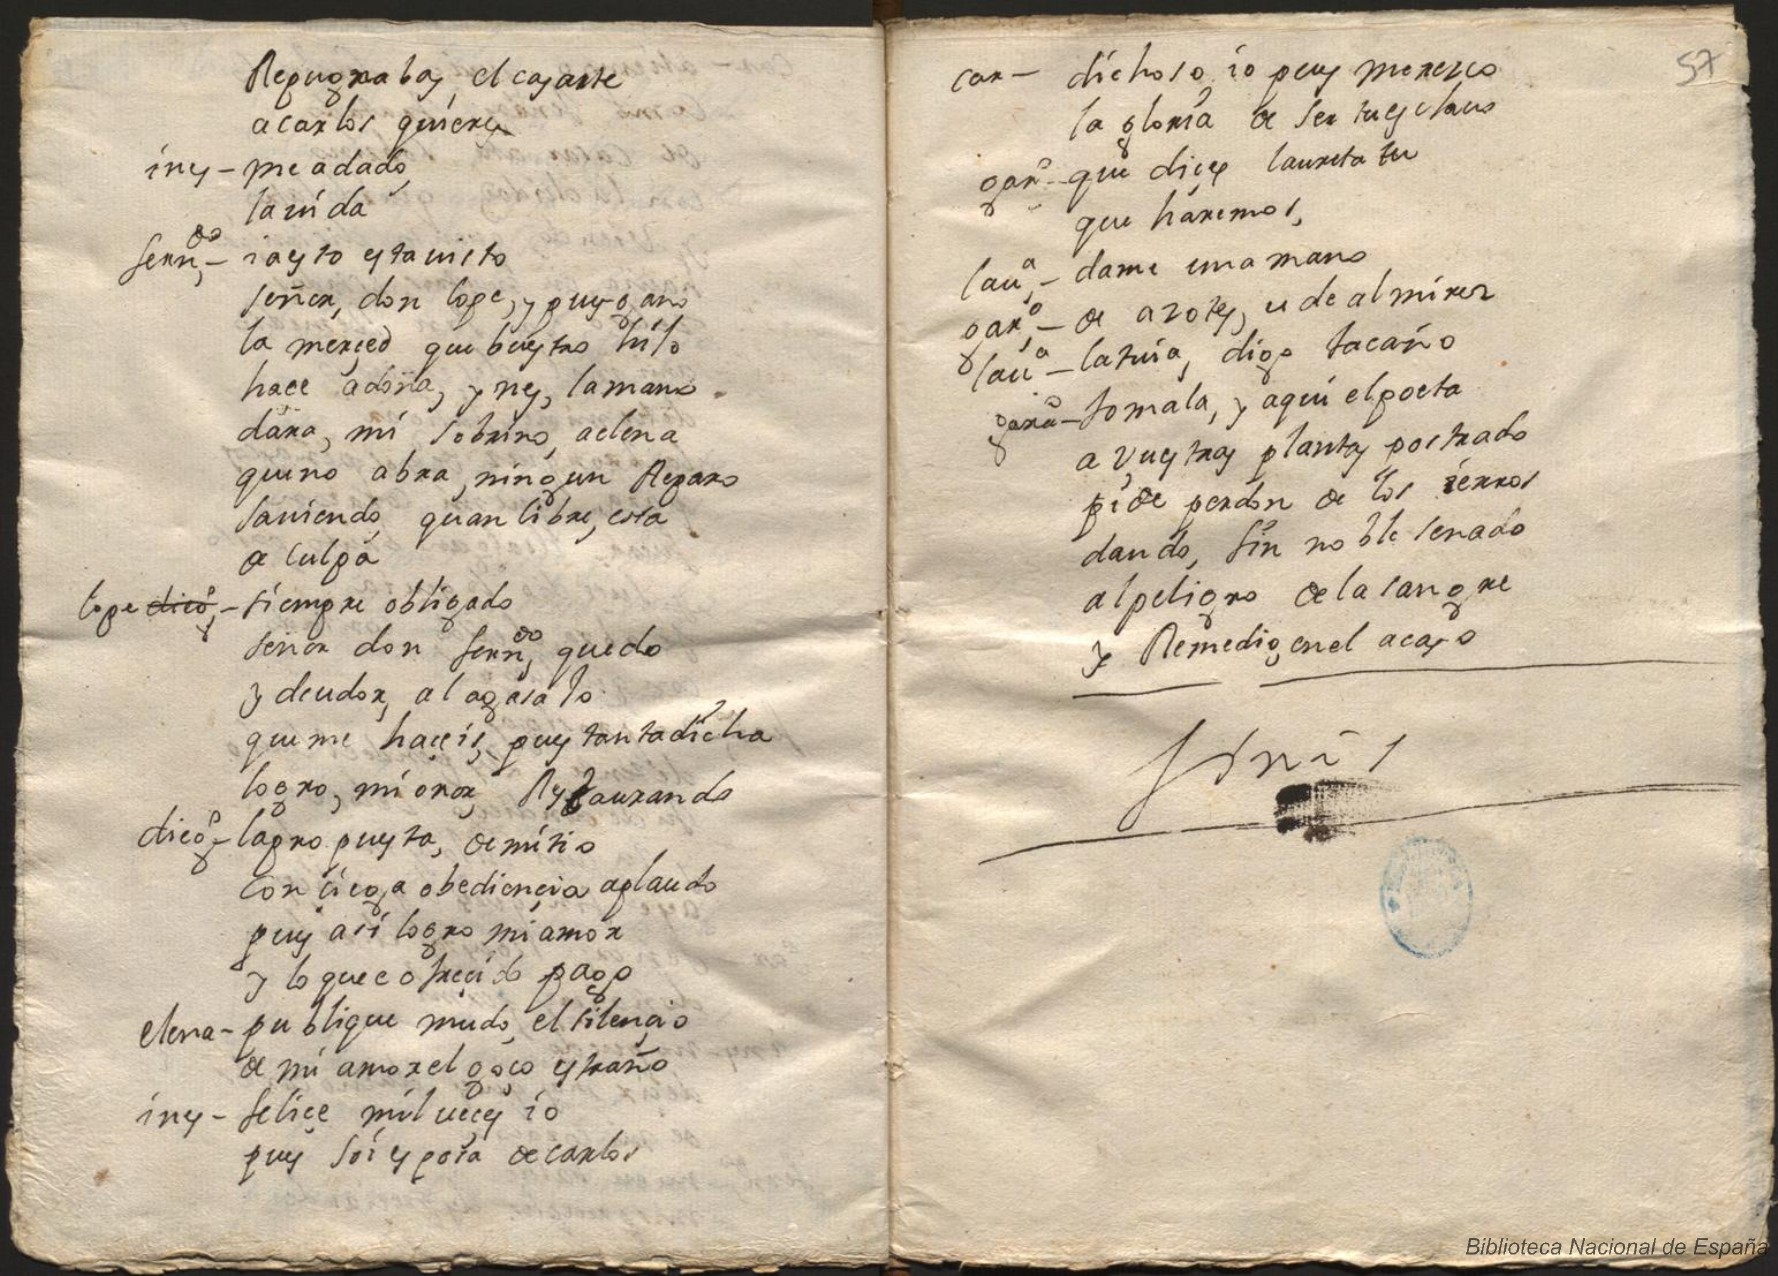 Repugnabas, el casarte
a carlos quieres
ines - me a dado,
la uida
fern.do - ia esto esta uisto
señor, don lope, y pues gano
la merçed que buestro hijo
hace a doña, ynes, la mano
dara, mi sobrino, a elena
que no abra, ningun Reparo
sauiendo, quan libre, esta
de culpa
lope diego, - siempre obligado
señor don fern.do quedo
y deudor, al agasajo
que me haçeis, pues tanta dicha
logro, mi onor, Restaurando
diego - la propuesta, de mi tio
con ciega obediençia aplaudo
pues asi logro mi amor
y lo que e ofreçido pago
elena - publique mudo, el silençio
de mi amor el goço estraño
ines - feliçe mil ueçes io
pues soi esposa de carlos
57
car - dichoso, io pues merezco
la gloria de ser tu esclauo
gar.o - que dices laureta tu
que haremos,
lau.a - dame una mano
gar.o - de azotes, u de almirez
lau.a - la tuia, digo tacaño
gar.o - tomala, y aqui el poeta
a vuestras plantas postrado
pide perdon de los ierros
dando, fin noble senado
al peligro de la sangre
y Remedio, en el acaso
finis
Biblioteca Nacional de España